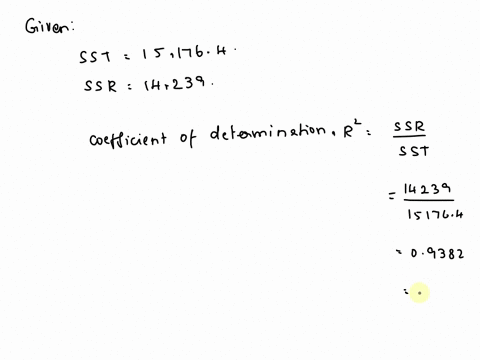 Given:
SST = 15,176.4.
SSR = 14,239.
coefficient of determination, R² = SSR / SST
= 14239 / 15176.4
= 0.9382
=